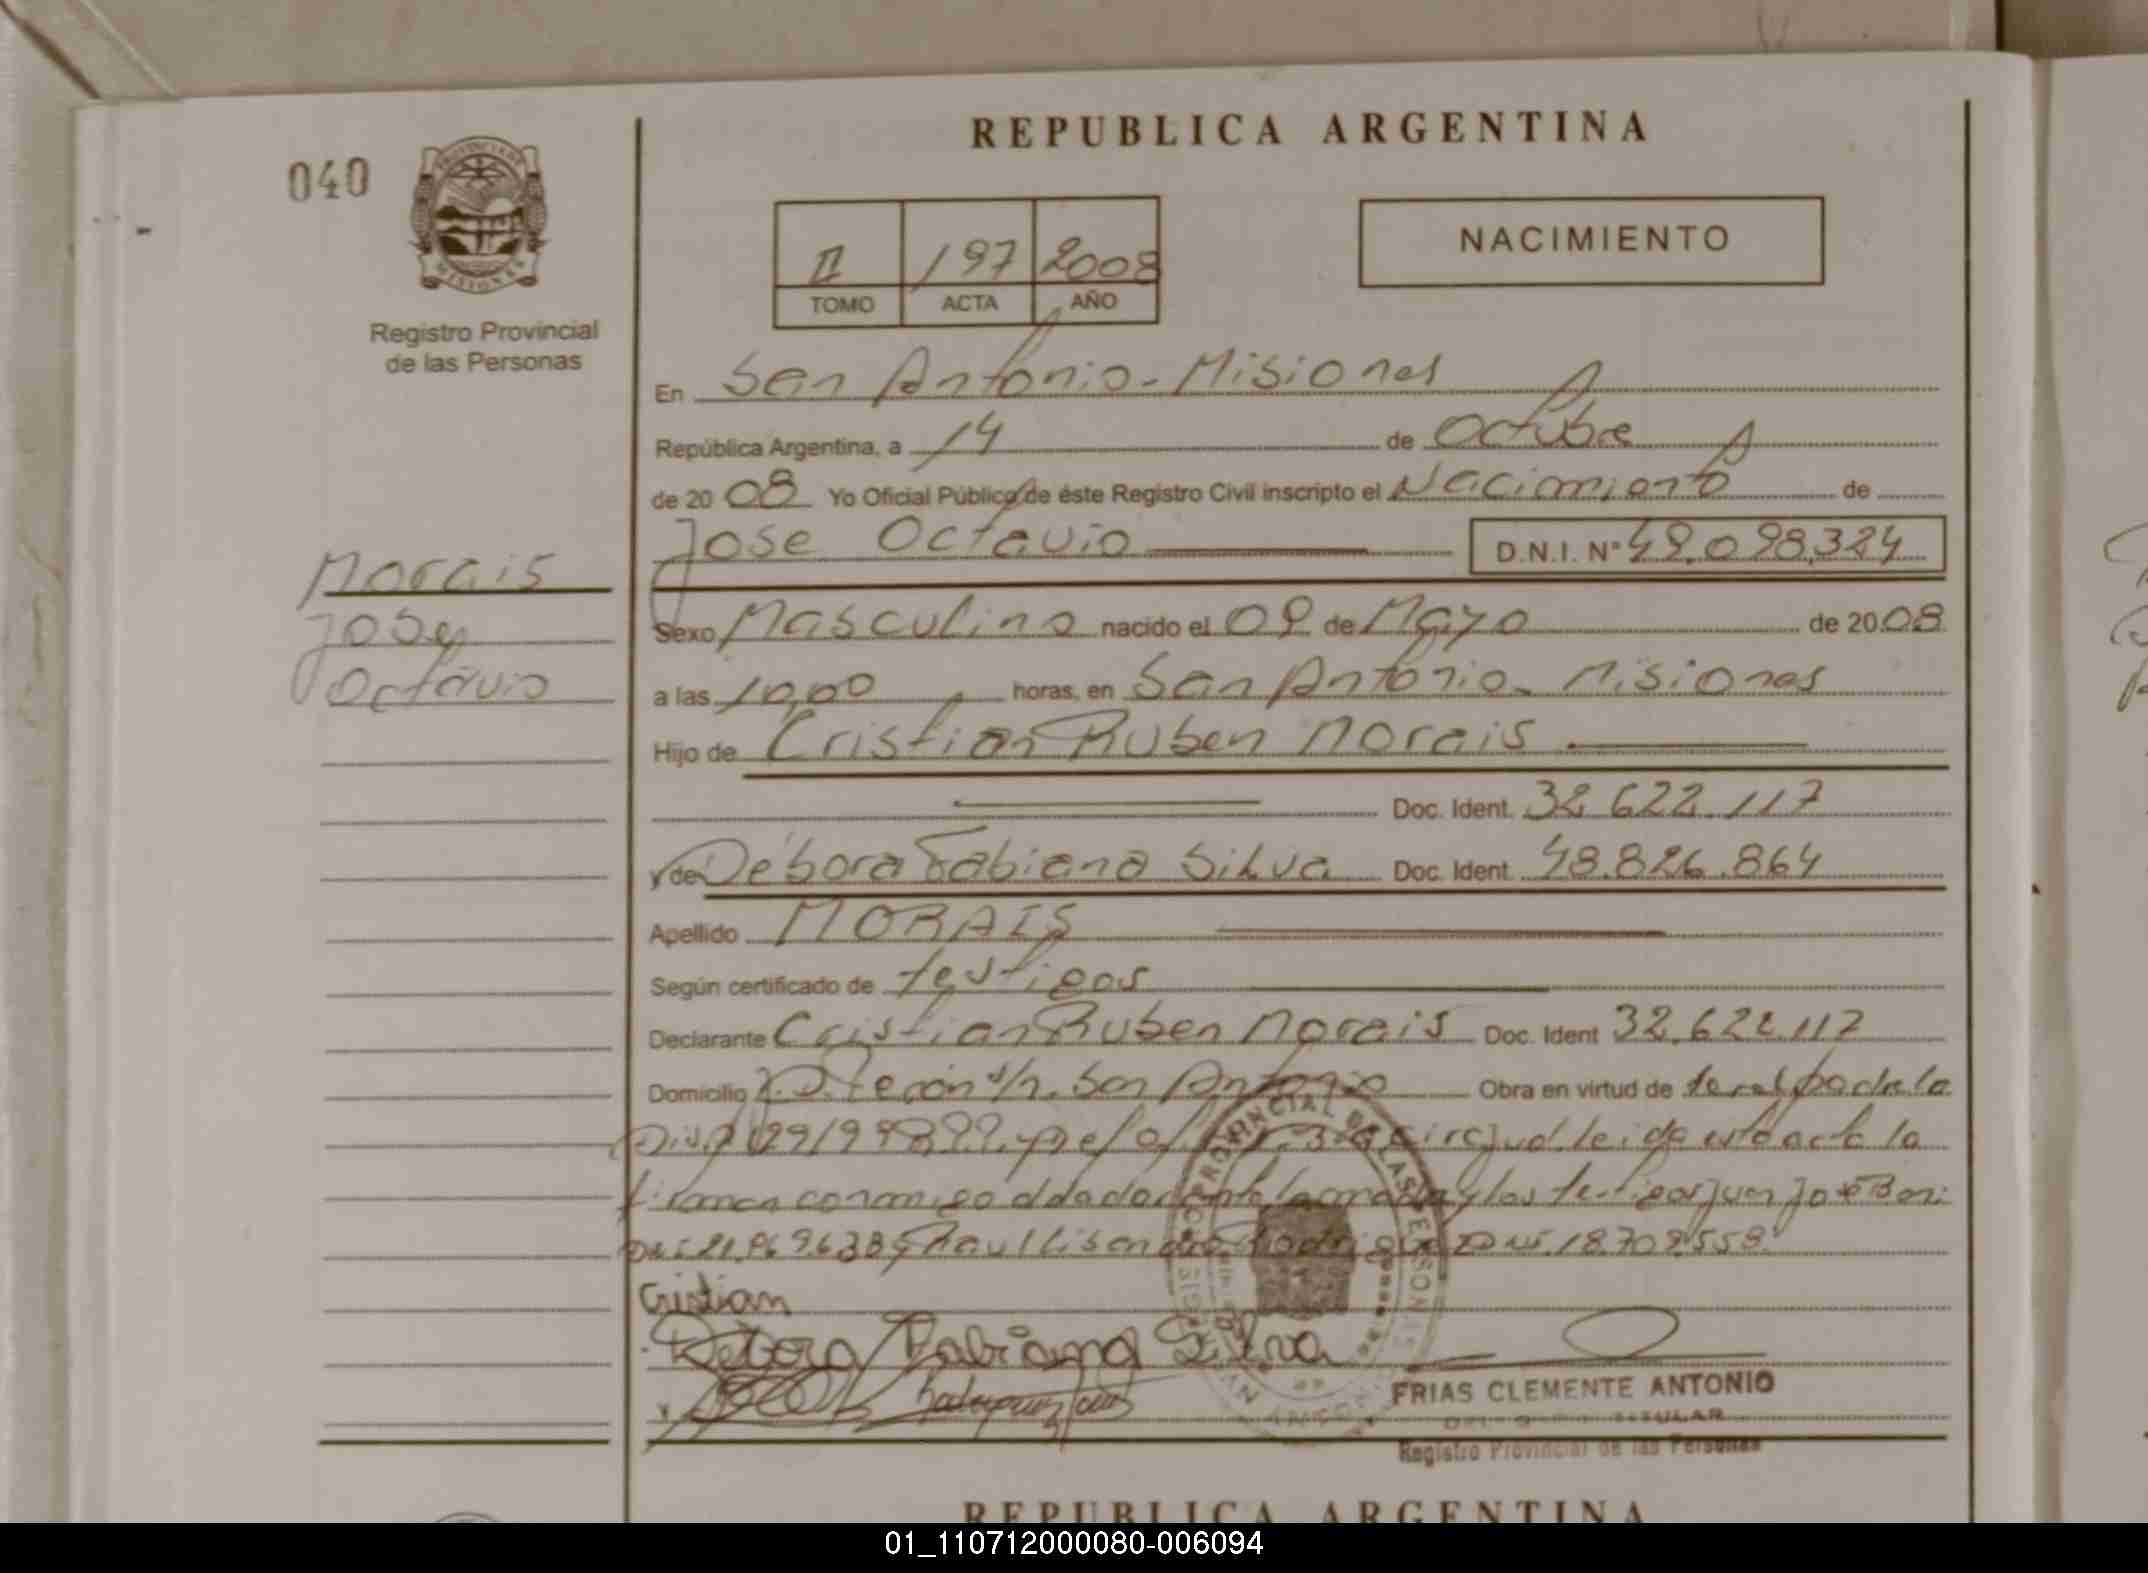 REPUBLICA ARGENTINA
040
NACIMIENTO
II 197 2008
TOMO ACTA AÑO
Registro Provincial
de las Personas
En San Antonio - Misiones
República Argentina, a 14 de Octubre
de 2008 Yo Oficial Público de éste Registro Civil inscripto el Nacimiento de
Jose Octavio D.N.I. Nº 49.098.324
Morais
Jose
Octavio
Sexo Masculino nacido el 09 de Mayo de 2008
a las 10,00 horas, en San Antonio - Misiones
Hijo de Cristian Ruben Morais
Doc. Ident. 32.622.117
y de Débora Fabiana Silva Doc. Ident. 48.826.864
Apellido MORAIS
Según certificado de testigos
Declarante Cristian Ruben Morais Doc. Ident 32.622.117
Domicilio Perón s/n. San Antonio Obra en virtud de
leida esta acta la
firman conmigo la madre y los testigos Juan Jose
Raul Lisandro DNI. 18.709.558
Cristian
Debora Fabiana Silva
FRIAS CLEMENTE ANTONIO
TITULAR
Registro Provincial de las Personas
REPUBLICA ARGENTINA
01_110712000080-006094